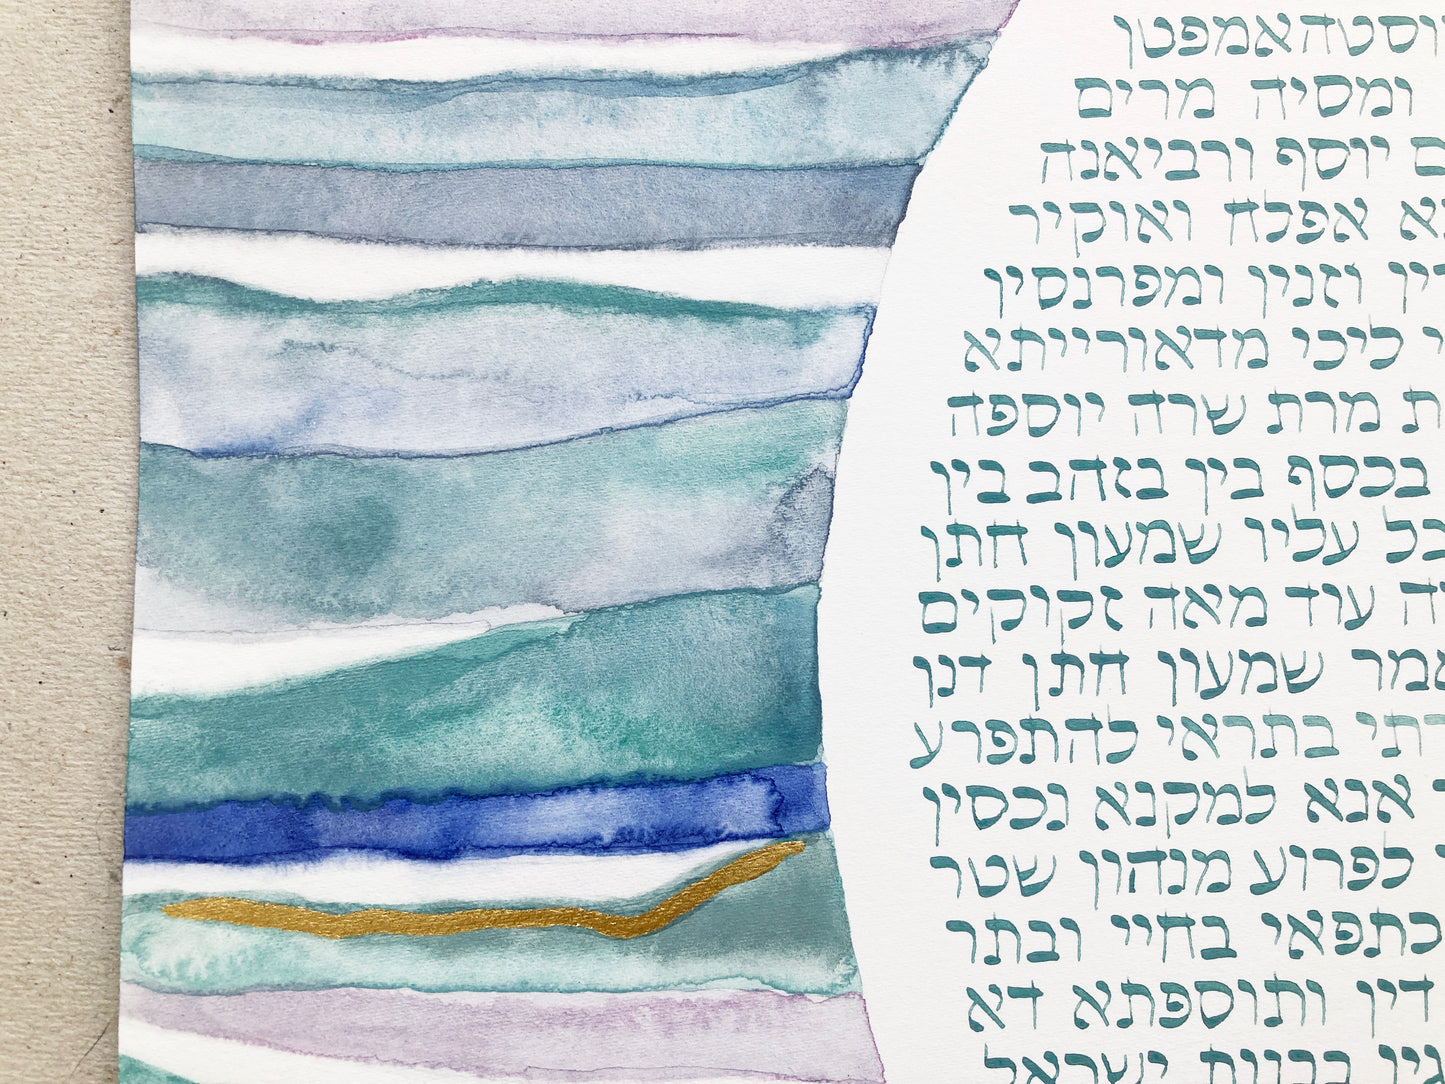 וסטהאמפטן
ומסיה מרים
ם יוסף ורביאנה
א אפלח ואוקיר
רין וזנין ומפרנסין
י ליכי מדאורייתא
ת מרת שרה יוספה
בכסף בין בזהב בין
בל עליו שמעון חתן
ה עוד מאה זקוקים
אמר שמעון חתן דנן
רתי בתראי להתפרע
אנא למקנא נכסין
לפרוע מנהון שטר
כתפאי בחיי ובתר
דין ותוספתא דא
גין בבנות ישראל